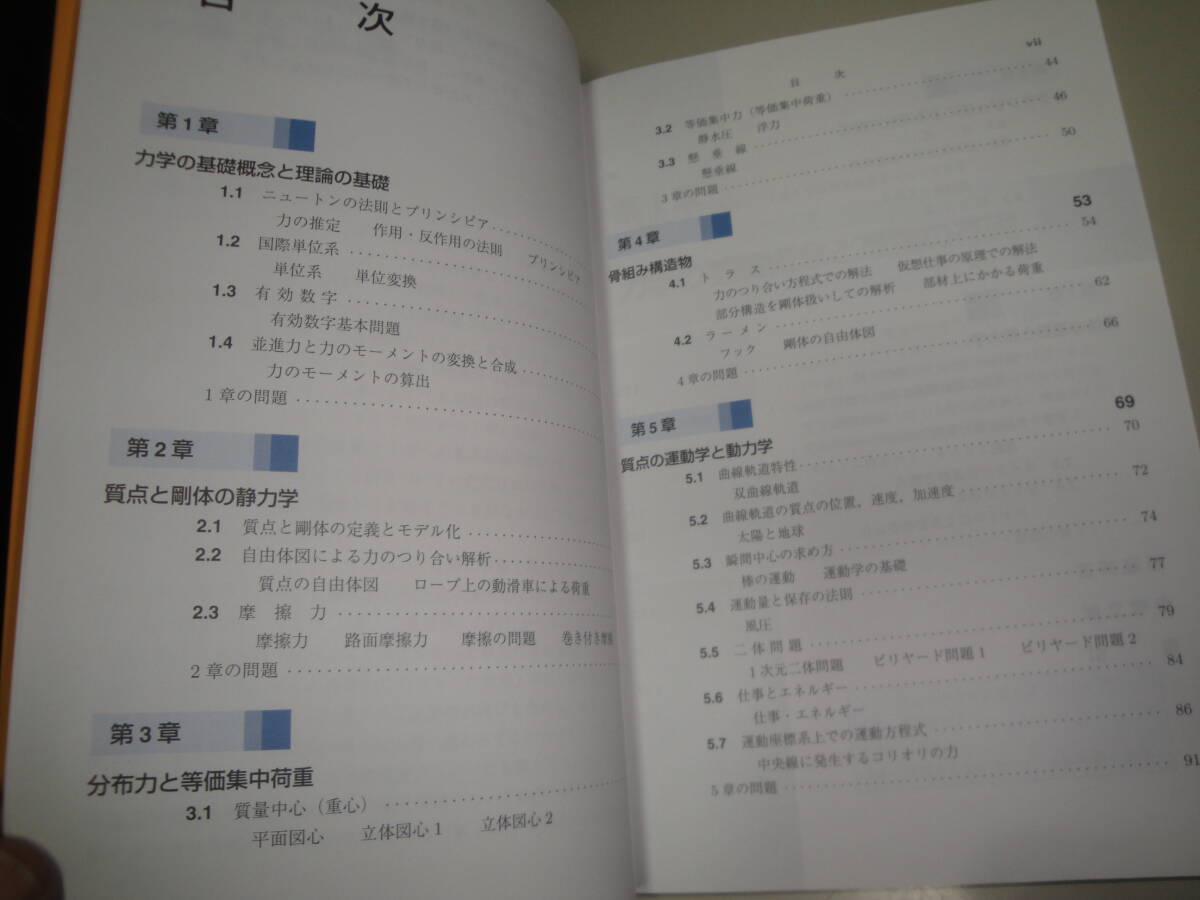 目 次
第1章
力学の基礎概念と理論の基礎
1.1 ニュートンの法則とプリンシピア
力の推定 作用・反作用の法則 プリンシピア
1.2 国際単位系
単位系 単位変換
1.3 有効数字
有効数字基本問題
1.4 並進力と力のモーメントの変換と合成
力のモーメントの算出
1章の問題
第2章
質点と剛体の静力学
2.1 質点と剛体の定義とモデル化
2.2 自由体図による力のつり合い解析
質点の自由体図 ロープ上の動滑車による荷重
2.3 摩擦力
摩擦力 路面摩擦力 摩擦の問題 巻き付き摩擦
2章の問題
第3章
分布力と等価集中荷重
3.1 質量中心（重心）
平面図心 立体図心1 立体図心2
vii
目 次
3.2 等価集中力（等価集中荷重） 44
静水圧 浮力
3.3 懸垂線 46
懸垂線
3章の問題 50
第4章
骨組み構造物 53
4.1 トラス 54
力のつり合い方程式での解法 仮想仕事の原理での解法
部分構造を剛体扱いしての解析 部材上にかかる荷重
4.2 ラーメン 62
フック 剛体の自由体図
4章の問題 66
第5章
質点の運動学と動力学 69
5.1 曲線軌道特性 70
双曲線軌道
5.2 曲線軌道の質点の位置，速度，加速度 72
太陽と地球
5.3 瞬間中心の求め方 74
棒の運動 運動学の基礎
5.4 運動量と保存の法則 77
風圧
5.5 二体問題 79
1次元二体問題 ビリヤード問題1 ビリヤード問題2
5.6 仕事とエネルギー 84
仕事・エネルギー
5.7 運動座標系上での運動方程式 86
中央線に発生するコリオリの力
5章の問題 91